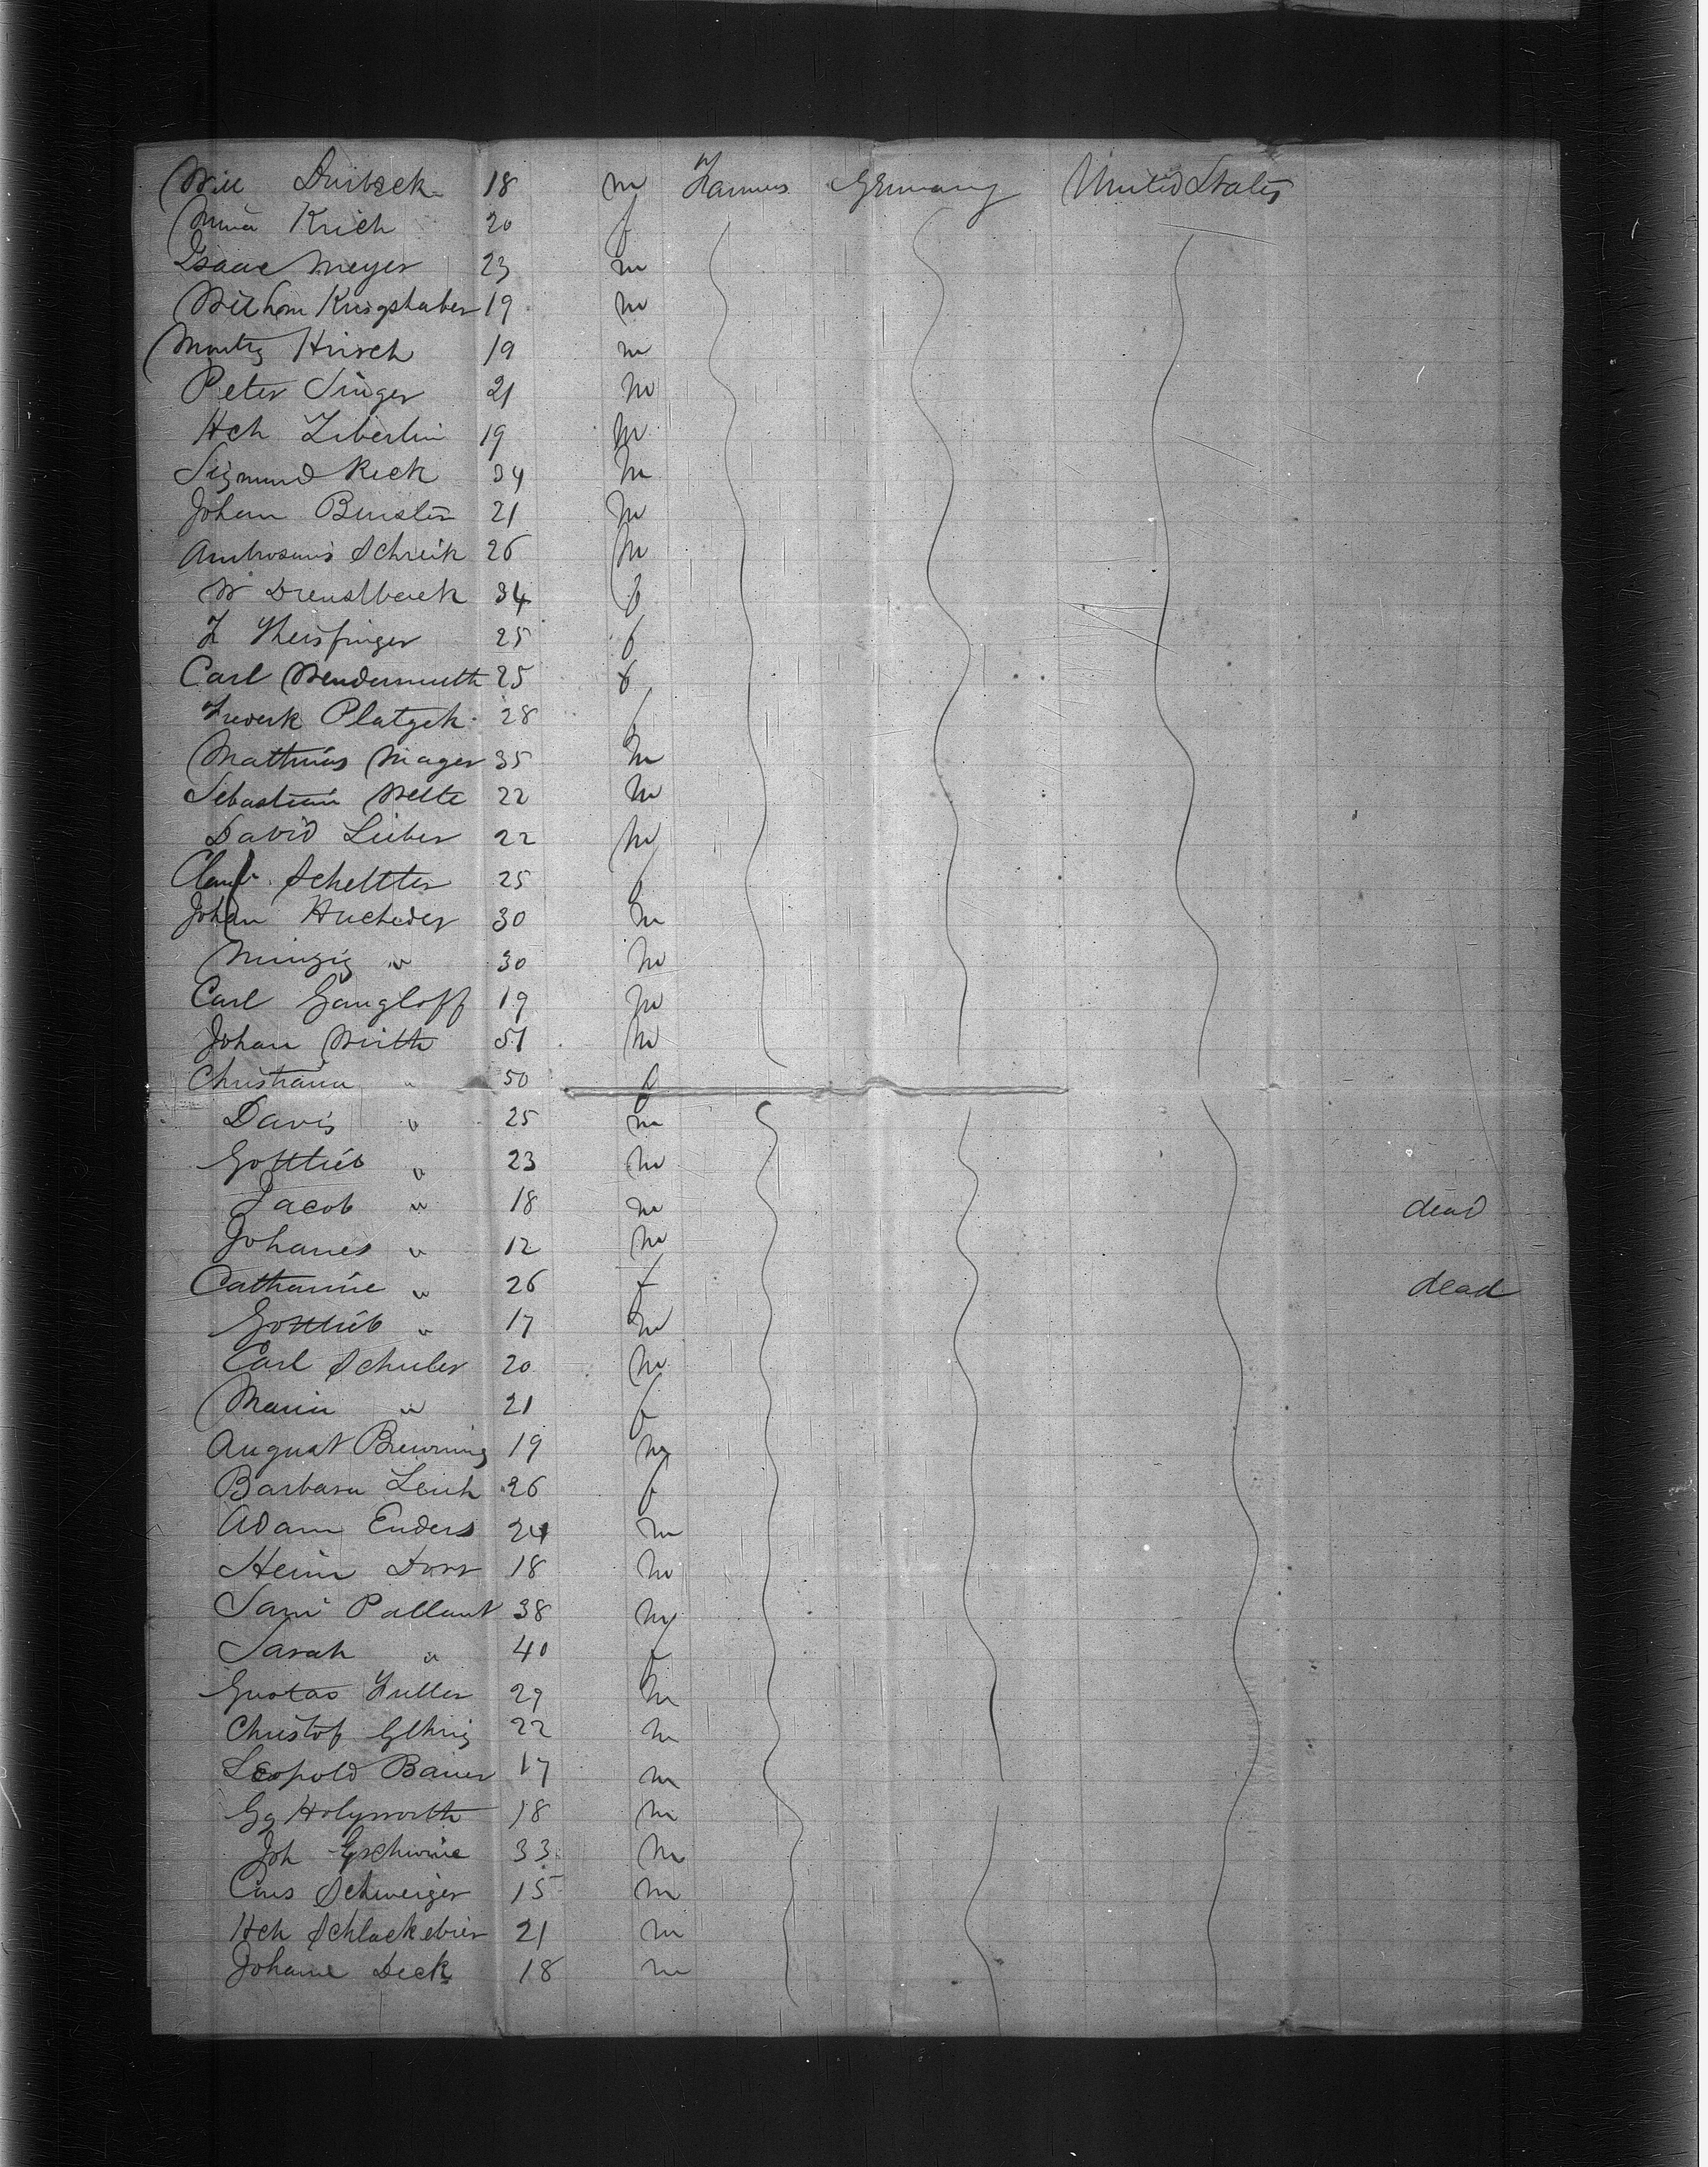 Will Duitzek 18 m Farmers Germany United States
Mina Krich 20 f
Isaac Meyer 23 m
Wilhom Krigshaber 19 m
Moritz Hirsch 19 m
Peter Singer 21 m
Hch Ziberlin 19 m
Sigmund Rick 34 m
Johann 21 m
Ambrosius Schreik 26 m
W Drenstbach 34 f
25 f
Carl Wendermuth 25 f
Platzek 28 f
Mathias Mager 35 m
Sebastian Welte 22 m
David Lieber 22 m
Schettler 25 f
Johan Hucheder 30 m
" 30 m
Carl Gangloff 19 m
Johan Wirth 51 m
Christiana " 50 f
David " 25 m
Gottlieb " 23 m
Jacob " 18 m dead
Johanes " 12 m
Catharine " 26 f dead
Gottlieb " 17 m
Carl Schuler 20 m
Maria " 21 f
August 19 m
Barbara 26 f
Adam Enders 24 m
Hein Dorr 18 m
Sam Pallant 38 m
Sarah " 40 f
Gustav Fuller 29 m
Christof Gehrig 22 m
Leopold Bauer 17 m
Gg Holzworth 18 m
Joh Gschwine 33 m
Schweizer 15 m
Hch Schlackebier 21 m
Johane Deck 18 m